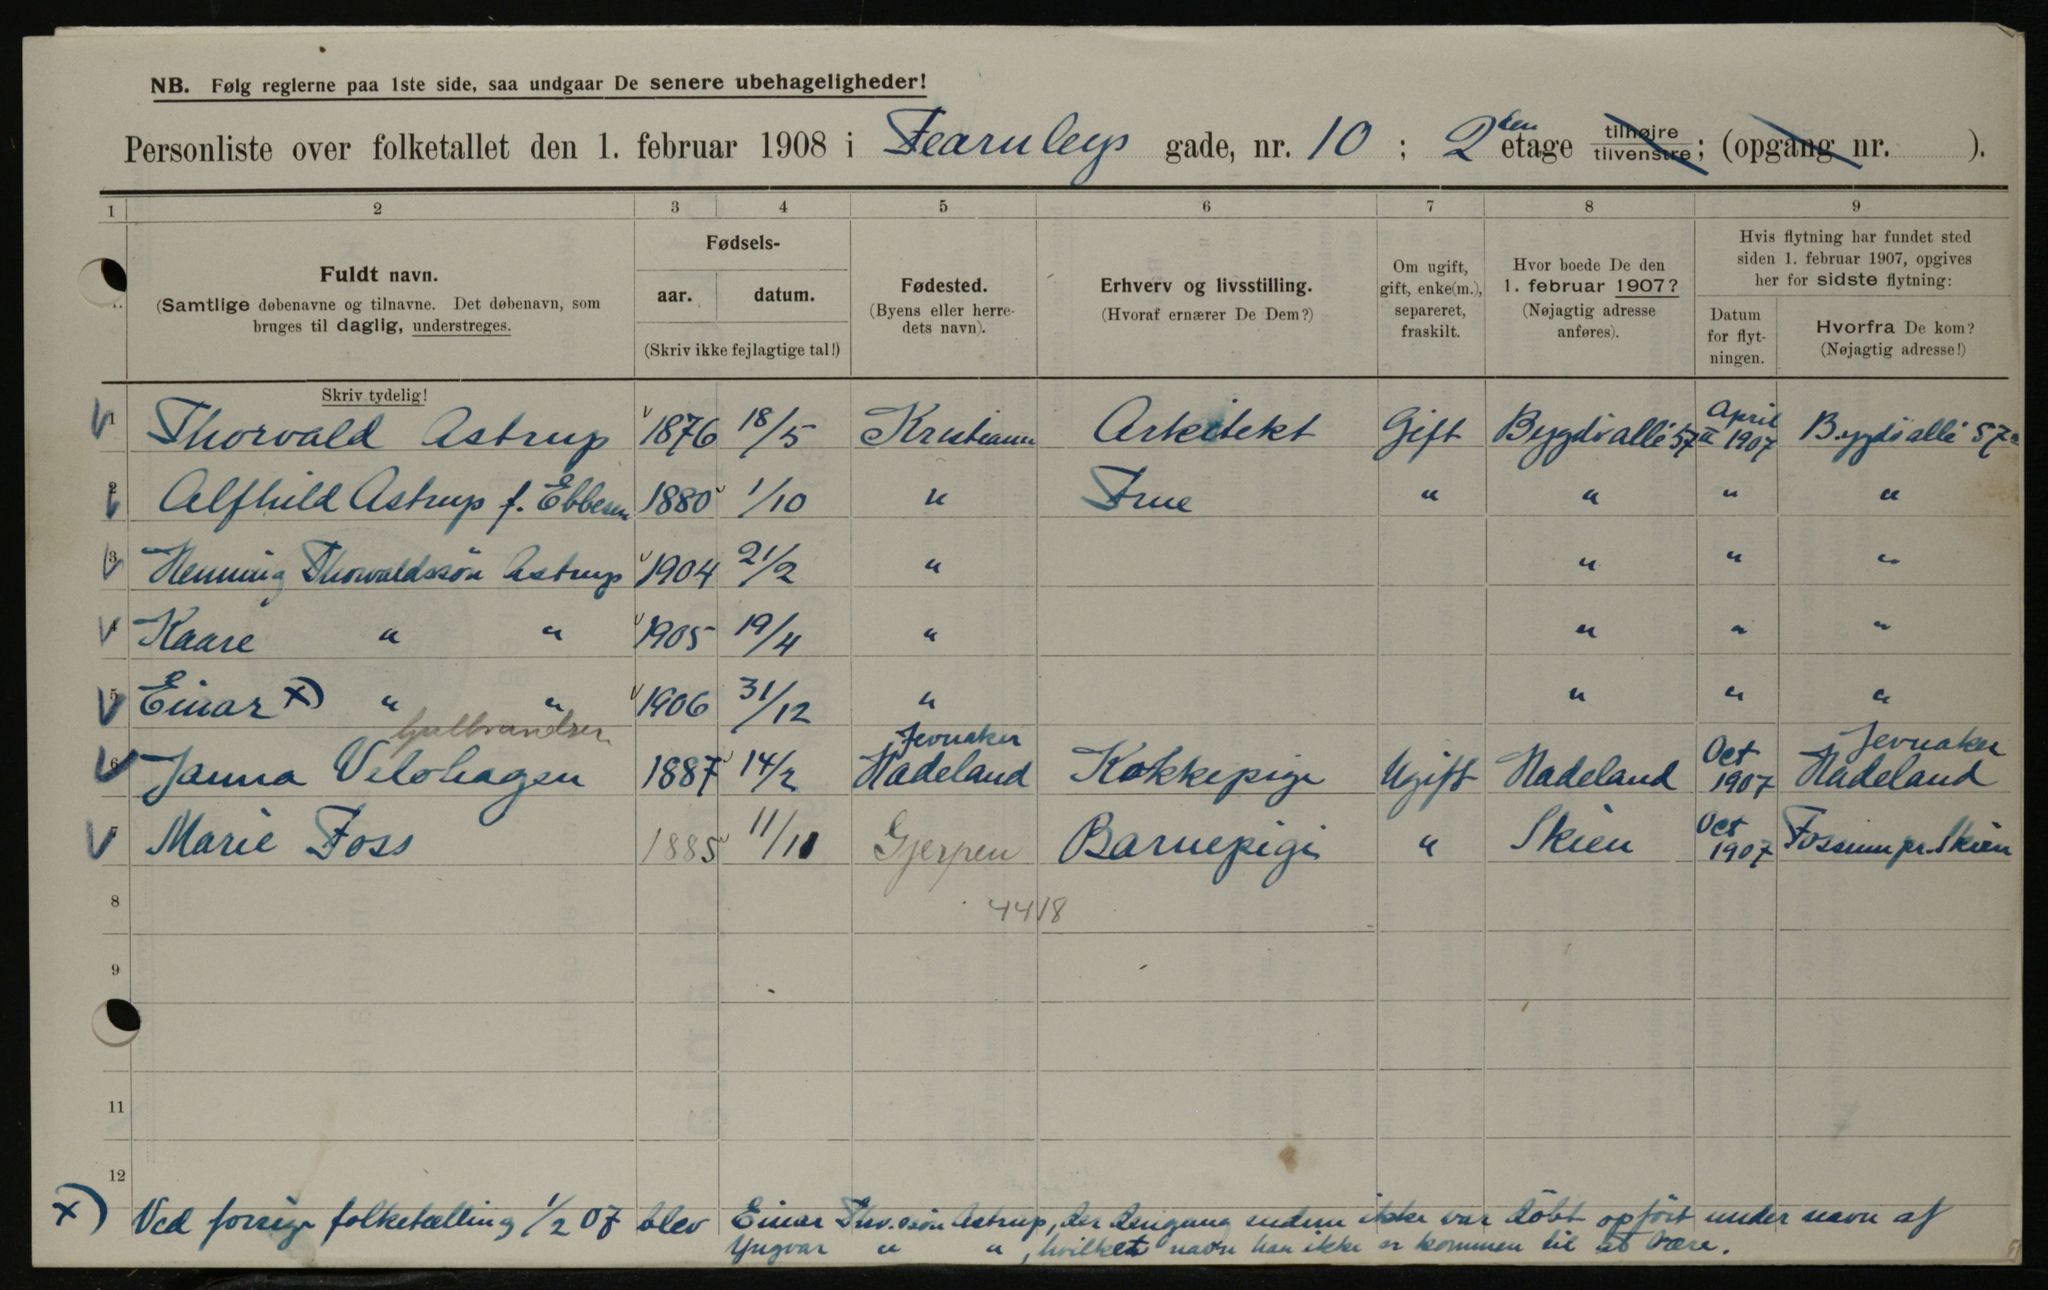 NB. Følg reglerne paa 1ste side, saa undgaar De senere ubehageligheder!
Personliste over folketallet den 1. februar 1908 i Fearnleys gade, nr. 10 ; 2den etage tilhøjre tilvenstre ; (opgang nr. ).
1 2 3 4 5 6 7 8 9
Fuldt navn.
(Samtlige døbenavne og tilnavne. Det døbenavn, som
bruges til daglig, understreges.
Skriv tydelig!
Fødsels-
aar. datum.
(Skriv ikke fejlagtige tal!)
Fødested.
(Byens eller herre-
dets navn).
Erhverv og livsstilling.
(Hvoraf ernærer De Dem?)
Om ugift,
gift, enke(m.),
separeret,
fraskilt.
Hvor boede De den
1. februar 1907?
(Nøjagtig adresse
anføres).
Hvis flytning har fundet sted
siden 1. februar 1907, opgives
her for sidste flytning:
Datum
for flyt-
ningen.
Hvorfra De kom?
(Nøjagtig adresse!)
1 Thorvald Astrup 1876 18/5 Kristiania Arkitekt Gift Bygdö allé 57a April 1907 Bygdö allé 57a
2 Alfhild Astrup f. Ebbesen 1880 1/10 " Frue " " " "
3 Henning Thorvaldssön Astrup 1904 21/2 " " " "
4 Kaare " " 1905 19/4 " " " "
5 Einar x) " " 1906 31/12 " " " "
Gulbrandsen Jevnaker Jevnaker
6 Janna Velohagen 1887 14/2 Hadeland Kokkepige Ugift Hadeland Oct 1907 Hadeland
7 Marie Foss 1885 11/11 Gjerpen Barnepige " Skien Oct 1907 Fossum pr. Skien
8 4418
9
11
12
x) Ved forrige folketælling 1/2 07 blev Einar Thv.ssön Astrup, der dengang endnu ikke var döbt opfört under navn af
Yngvar " " , hvilket navn han ikke er kommen til at bære.